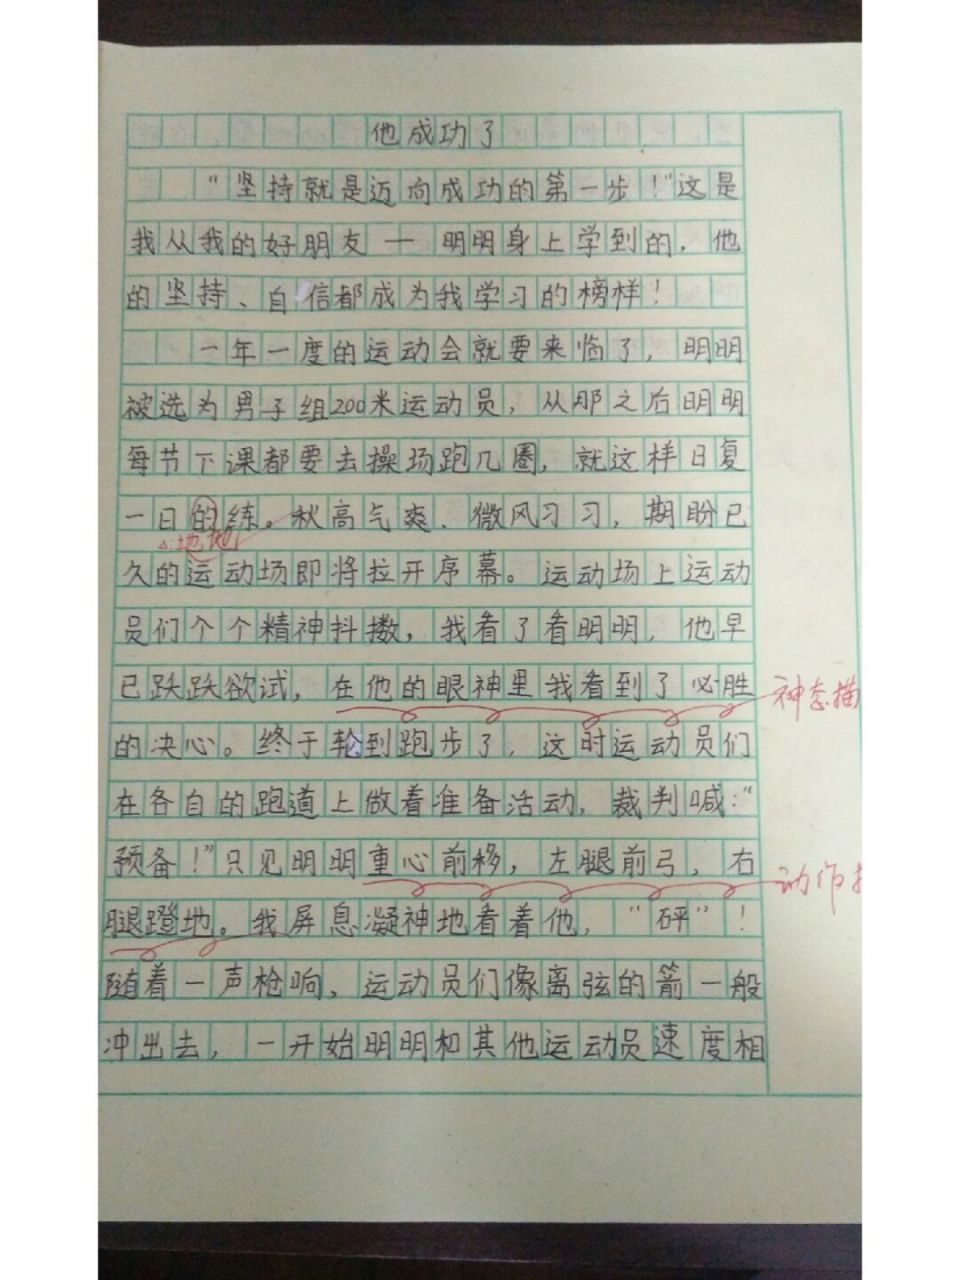 他成功了
“坚持就是迈向成功的第一步！”这是
我从我的好朋友一明明身上学到的，他
的坚持、自信都成为我学习的榜样！
一年一度的运动会就要来临了，明明
被选为男子组200米运动员，从那之后明明
每节下课都要去操场跑几圈，就这样日复
一日的练。秋高气爽、微风习习，期盼已
地地
久的运动场即将拉开序幕。运动场上运动
员们个个精神抖擞，我看了看明明，他早
已跃跃欲试，在他的眼神里我看到了必胜
神态描
的决心。终于轮到跑步了，这时运动员们
在各自的跑道上做着准备活动，裁判喊：“
预备！”只见明明重心前移，左腿前弓，右
动作
腿蹬地。我屏息凝神地看着他，“砰”！
随着一声枪响，运动员们像离弦的箭一般
冲出去，一开始明明和其他运动员速度相